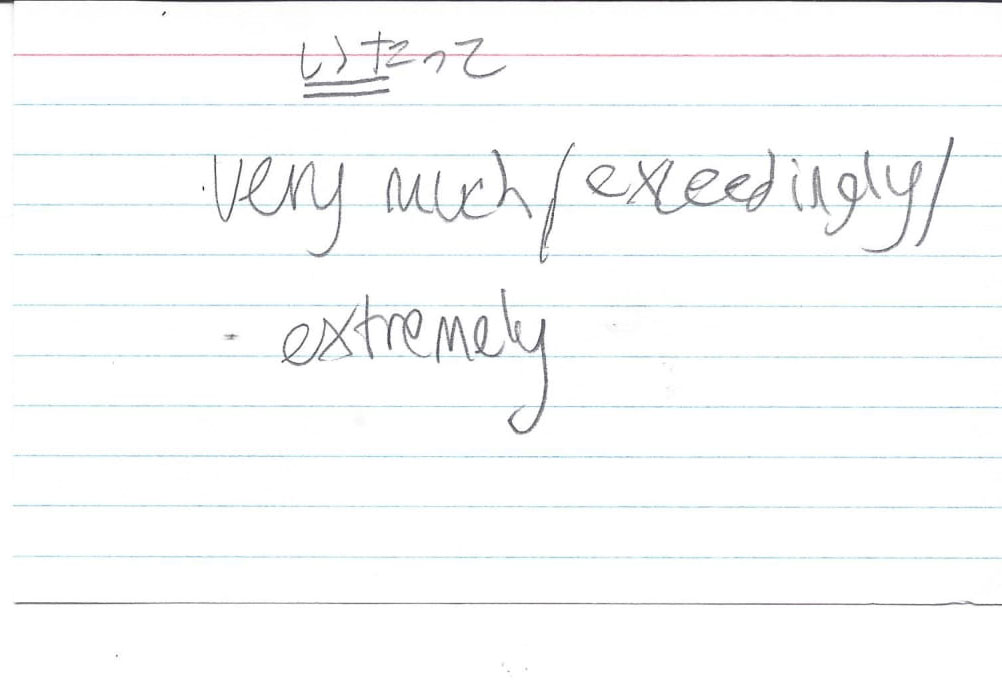 いたって
very much/exceedingly/
extremely